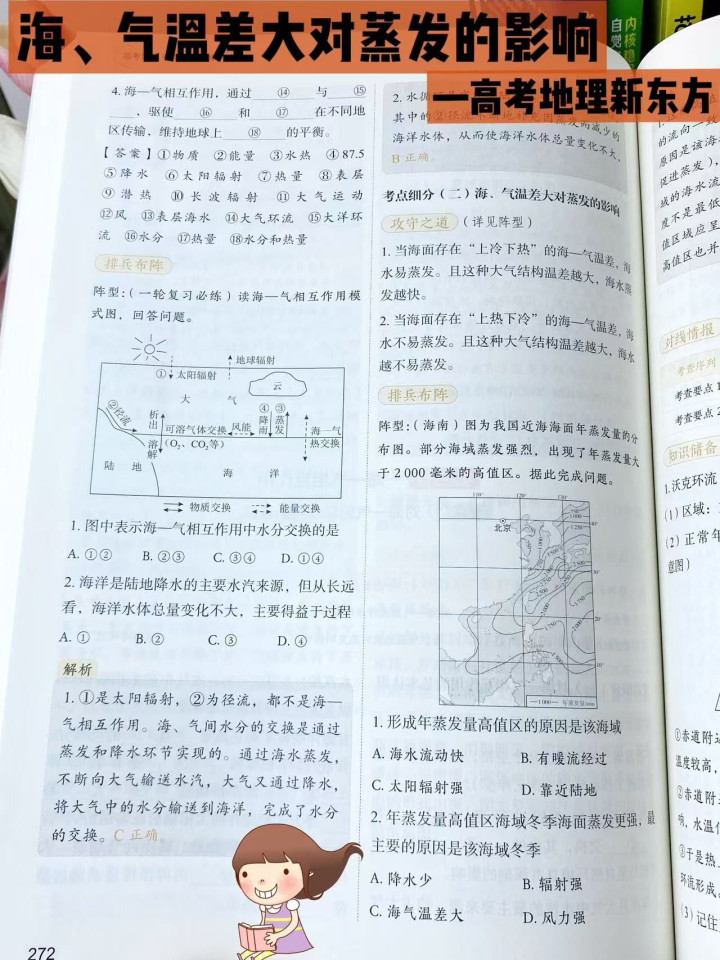 海、气温差大对蒸发的影响
—高考地理新东方
4.海—气相互作用,通过 ⑭ 与 ⑮
,驱使 ⑯ 和 ⑰ 在不同地
区传输,维持地球上 ⑱ 的平衡。
【答案】①物质 ②能量 ③水热 ④87.5
⑤降水 ⑥太阳辐射 ⑦热量 ⑧表层
⑨潜热 ⑩长波辐射 ⑪大气运动
⑫风 ⑬表层海水 ⑭大气环流 ⑮大洋环
流 ⑯水分 ⑰热量 ⑱水分和热量
排兵布阵
阵型:(一轮复习必练)读海—气相互作用模
式图,回答问题。
地球辐射
① 太阳辐射
云
大 气
②径流
析出
可溶气体交换
(O₂、CO₂等)
溶解
风能
④降雨
③蒸发
海—气
热交换
陆 地
海 洋
物质交换
能量交换
1.图中表示海—气相互作用中水分交换的是
A.①② B.②③ C.③④ D.①④
2.海洋是陆地降水的主要水汽来源,但从长远
看,海洋水体总量变化不大,主要得益于过程
A.① B.② C.③ D.④
解析
1.①是太阳辐射,②为径流,都不是海—
气相互作用。海、气间水分的交换是通过
蒸发和降水环节实现的。通过海水蒸发,
不断向大气输送水汽,大气又通过降水,
将大气中的水分输送到海洋,完成了水分
的交换。C正确
272
海洋水体,从而使海洋水体总量变化不大,
B正确。
考点细分(二)海、气温差大对蒸发的影响
攻守之道 (详见阵型)
1.当海面存在“上冷下热”的海—气温差,海
水易蒸发。且这种大气结构温差越大,海水蒸
发越快。
2.当海面存在“上热下冷”的海—气温差,海
水不易蒸发。且这种大气结构温差越大,海水
越不易蒸发。
排兵布阵
阵型:(海南)图为我国近海海面年蒸发量的分
布图。部分海域蒸发强烈,出现了年蒸发量大
于2 000毫米的高值区。据此完成问题。
北京
1.形成年蒸发量高值区的原因是该海域
A.海水流动快 B.有暖流经过
C.太阳辐射强 D.靠近陆地
2.年蒸发量高值区海域冬季海面蒸发更强,最
主要的原因是该海域冬季
A.降水少 B.辐射强
C.海气温差大 D.风力强
的流向一
原因是该海
促进蒸发),
域的海水流
度不是最低
值区域应呈
高值区也并
对线情报
考查序列
考查要点1
考查要点2
知识储备
1.沃克环流
(1)区域:
(2)正常年
意图)
①赤道附近
温度较高,
②赤道附
响,水温
③于是热
环流形成。
(3)记住